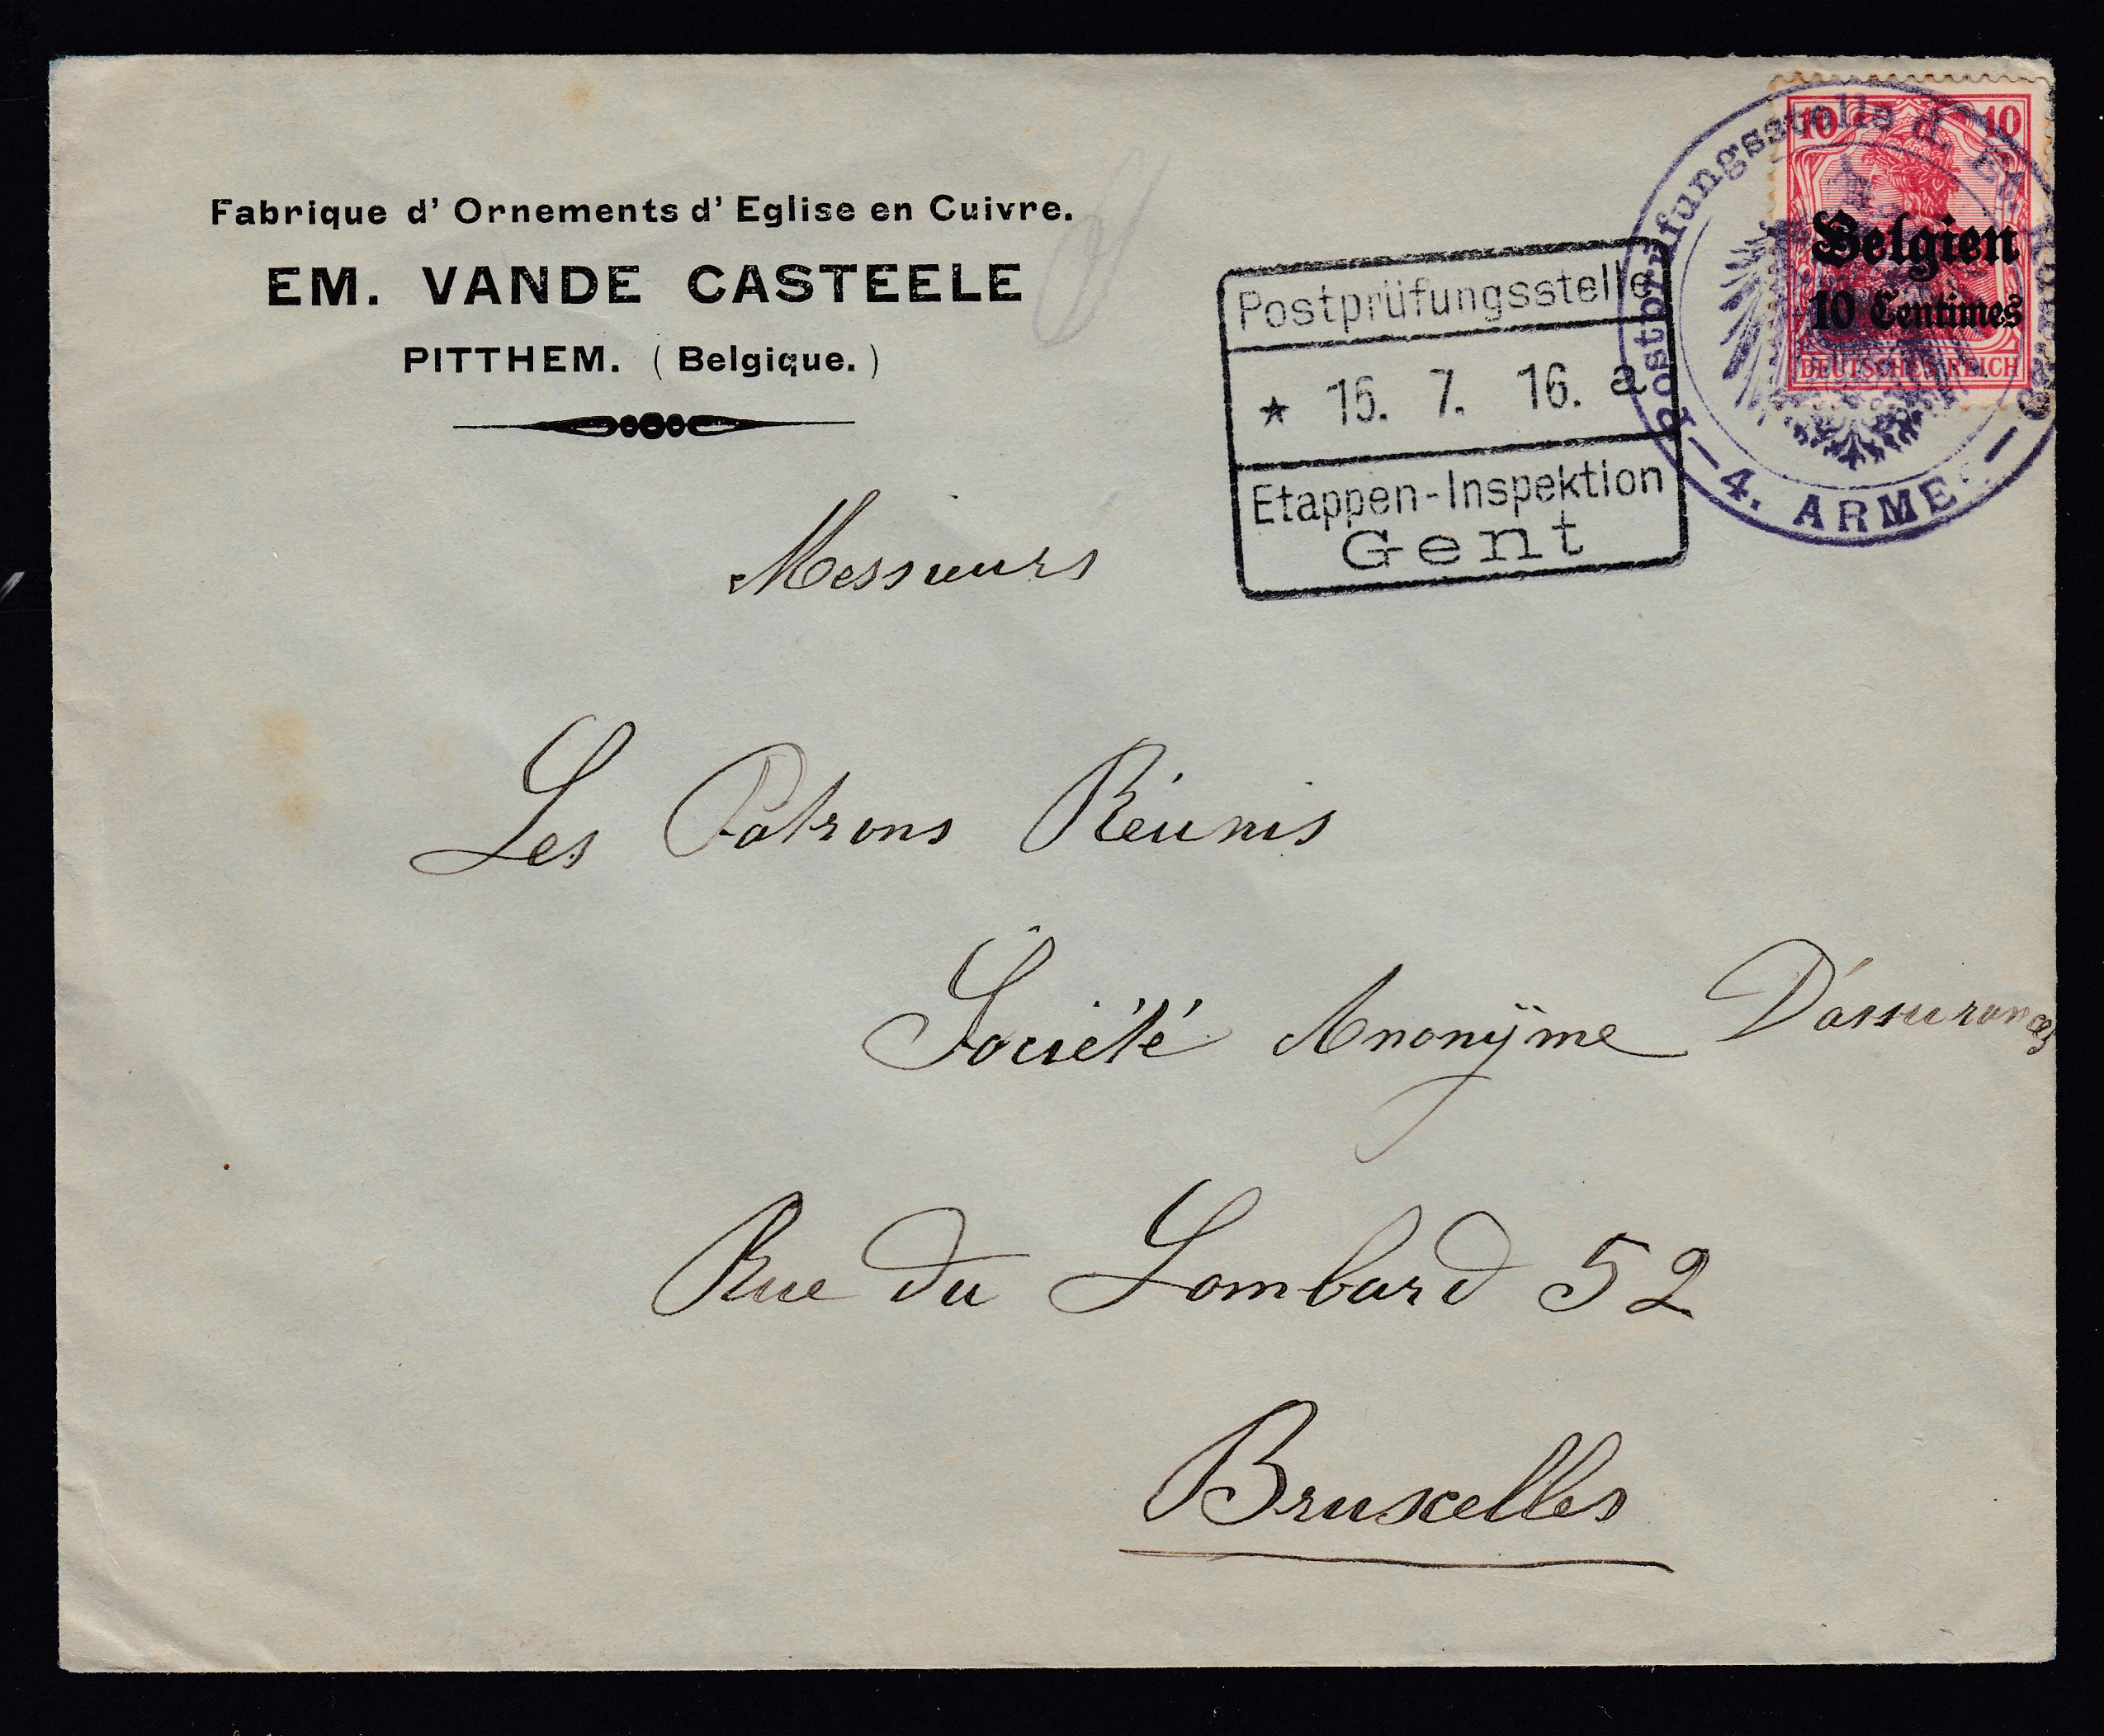 Fabrique d' Ornements d' Eglise en Cuivre.
EM. VANDE CASTEELE
PITTHEM. ( Belgique. )
10 10
Belgien
10 Centimes
DEUTSCHES REICH
Postprüfungsstelle d.
4. ARMEE
Postprüfungsstelle
★ 15. 7. 16. a
Etappen-Inspektion
Gent
Messieurs
Les Patrons Réunis
Société Anonÿme D'assurances
Rue du Lombard 52
Bruxelles